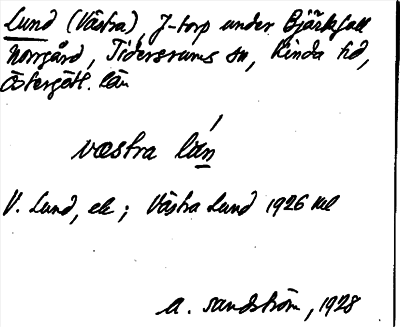 Lund (Västra) J-torp under Björkfall
Norrgård, Tidersrums sn, Kinda hd,
Östergötl. län
væstra lán
V. Lund, ek; Västra Lund 1926 tel
A. Sandström, 1928